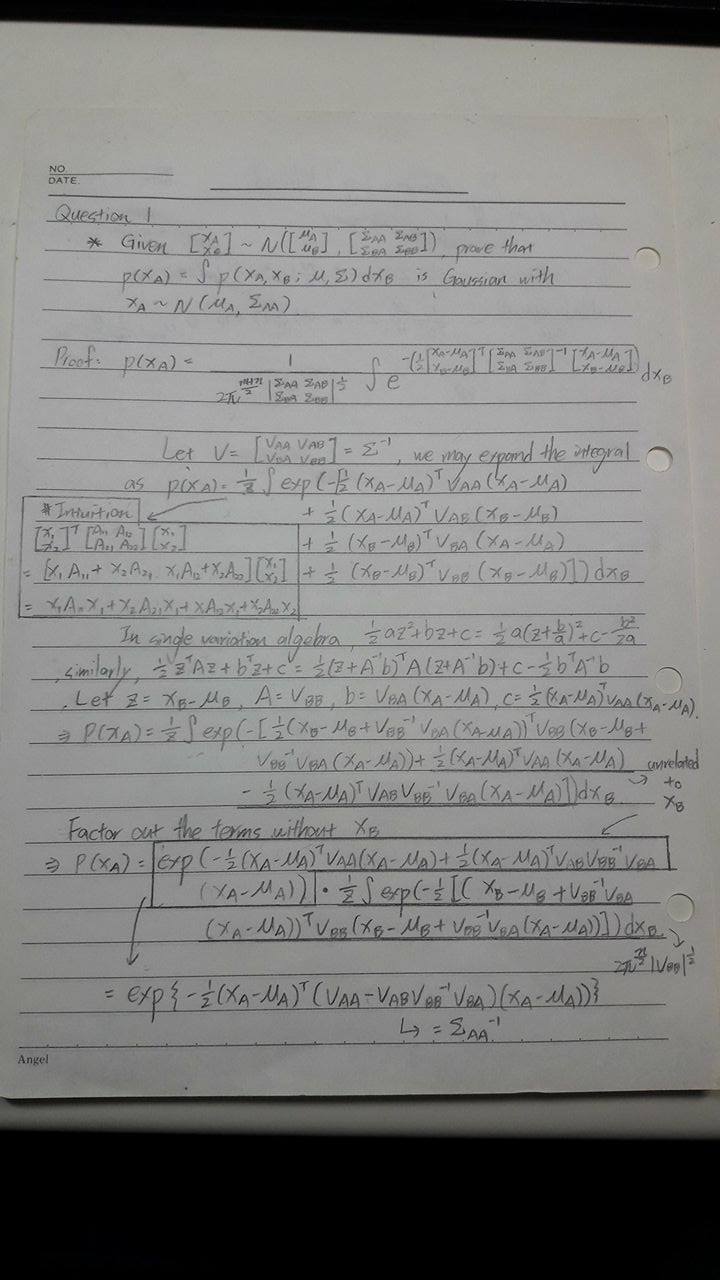 NO.
DATE.
Question 1
* Given [xA xB] ~ N([μA μB], [ΣAA ΣAB ΣBA ΣBB]), prove that
p(xA) = ∫ p(xA, xB; μ, Σ) dxB is Gaussian with
xA ~ N(μA, ΣAA)
Proof: p(xA) = 1 / (2π |ΣAA ΣAB ΣBA ΣBB|^½) ∫ e^-(½[xA-μA xB-μB]^T [ΣAA ΣAB ΣBA ΣBB]^-1 [xA-μA xB-μB]) dxB
Let V = [VAA VAB VBA VBB] = Σ^-1, we may expand the integral
as p(xA) = 1/Z ∫ exp(-[½(xA-μA)^T VAA(xA-μA)
+ ½(xA-μA)^T VAB(xB-μB)
+ ½(xB-μB)^T VBA(xA-μA)
+ ½(xB-μB)^T VBB(xB-μB)]) dxB
# Intuition
[x1 x2]^T [A11 A12 A21 A22] [x1 x2]
= [x1A11+x2A21 x1A12+x2A22] [x1 x2]
= x1A11x1+x2A21x1+xA12x2+x2A22x2
In single variation algebra, ½az²+bz+c = ½a(z+b/a)²+c-b²/2a
, similarly, ½z^TAz+b^Tz+c = ½(z+A^-1b)^TA(z+A^-1b)+c-½b^TA^-1b
. Let z = xB-μB, A = VBB, b = VBA(xA-μA), c = ½(xA-μA)^TVAA(xA-μA).
⇒ P(xA) = 1/Z ∫ exp(-[½(xB-μB+VBB^-1VBA(xA-μA))^TVBB(xB-μB+
VBB^-1VBA(xA-μA))+½(xA-μA)^TVAA(xA-μA)
unrelated to xB
-½(xA-μA)^TVABVBB^-1VBA(xA-μA)]) dxB
Factor out the terms without xB
⇒ P(xA) = exp(-½(xA-μA)^TVAA(xA-μA)+½(xA-μA)^TVABVBB^-1VBA
(xA-μA)) · 1/Z ∫ exp(-½[(xB-μB+VBB^-1VBA
(xA-μA))^TVBB(xB-μB+VBB^-1VBA(xA-μA))]) dxB
2π^n/2 |VBB|^½
= exp{-½(xA-μA)^T(VAA-VABVBB^-1VBA)(xA-μA))}
↳ = ΣAA^-1
Angel